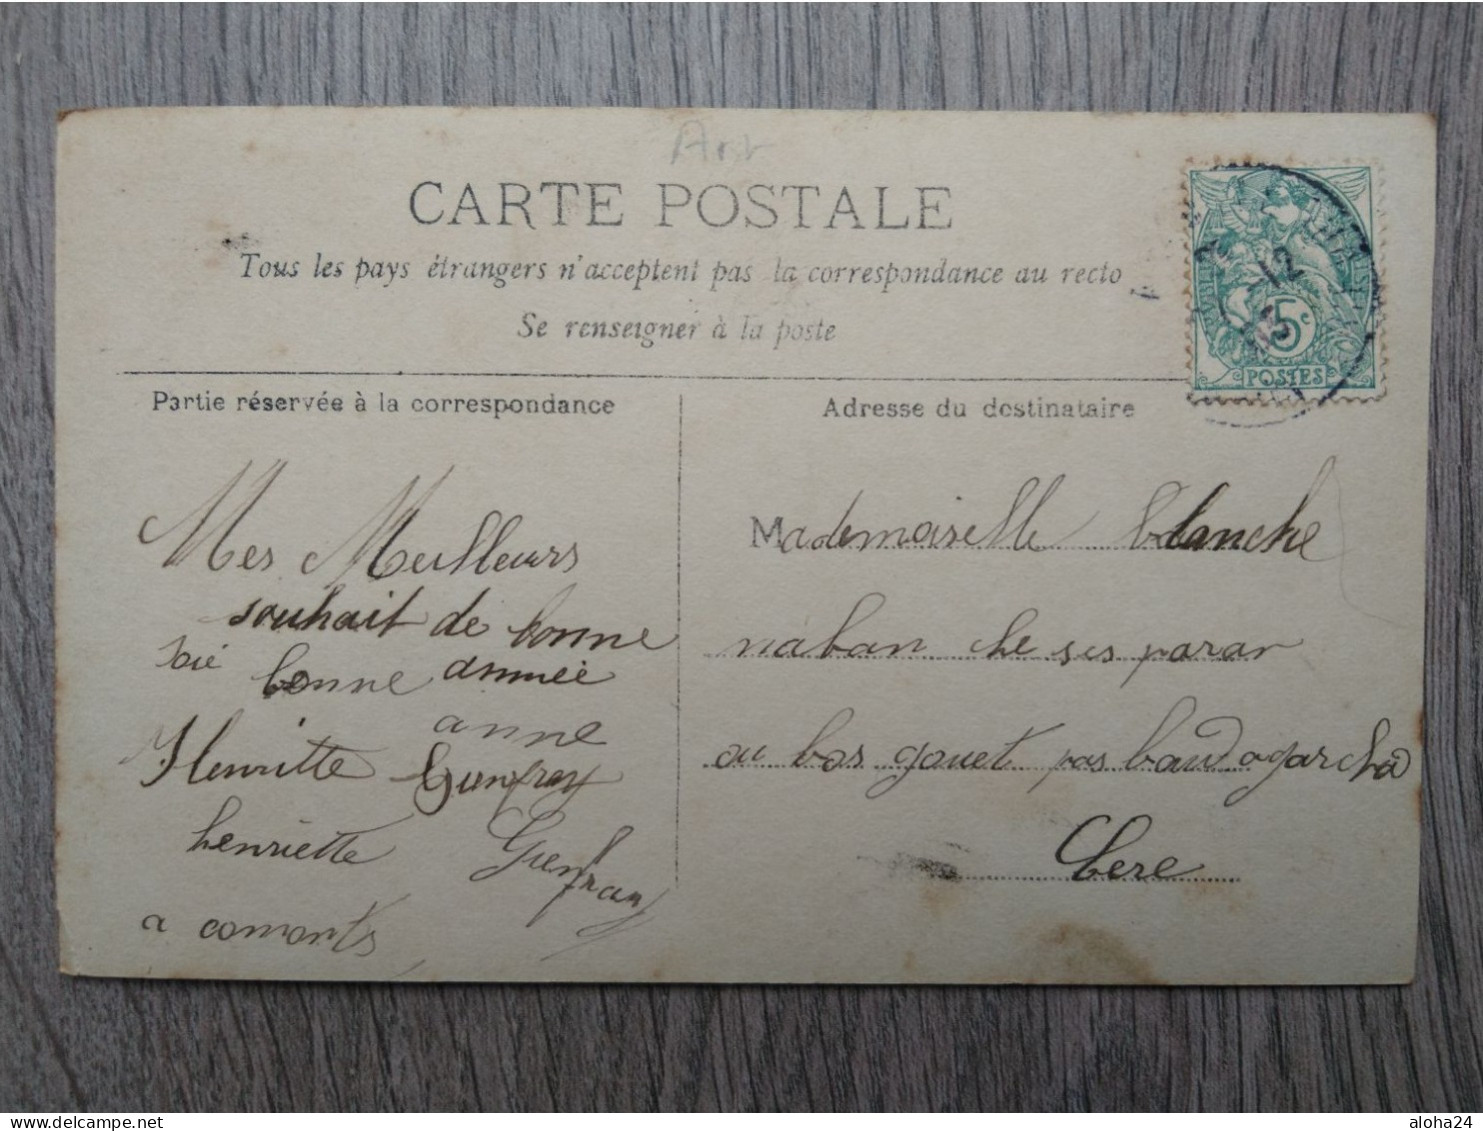 CARTE POSTALE
Tous les pays étrangers n'acceptent pas la correspondance au recto
Se renseigner à la poste
5c
POSTES
12
Partie réservée à la correspondance
Mes Meilleurs
souhait de bonne
bonne année
anne
Henritte Gunfroy
henriette
a comonts
Adresse du destinataire
Mademoiselle blanche
naban che ses paran
au bos gouet pas baudogarcha
Ebere
aloha24